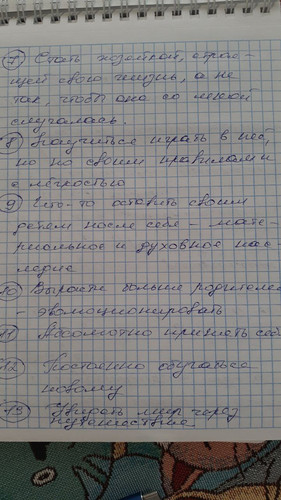 7) Стать хозяйкой, строя-
щей свою жизнь, а не
так, чтобы она со мной
случалась.
8) Научиться играть в неё,
но по своим правилам и
с лёгкостью
9) Что-то оставить своим
детям после себя – мате-
риальное и духовное нас-
ледие
10) Вырасти больше родителей
– эволюционировать
11) Абсолютно принять себя
12) Постоянно обучаться
новому
13) Увидеть мир через
путешествие